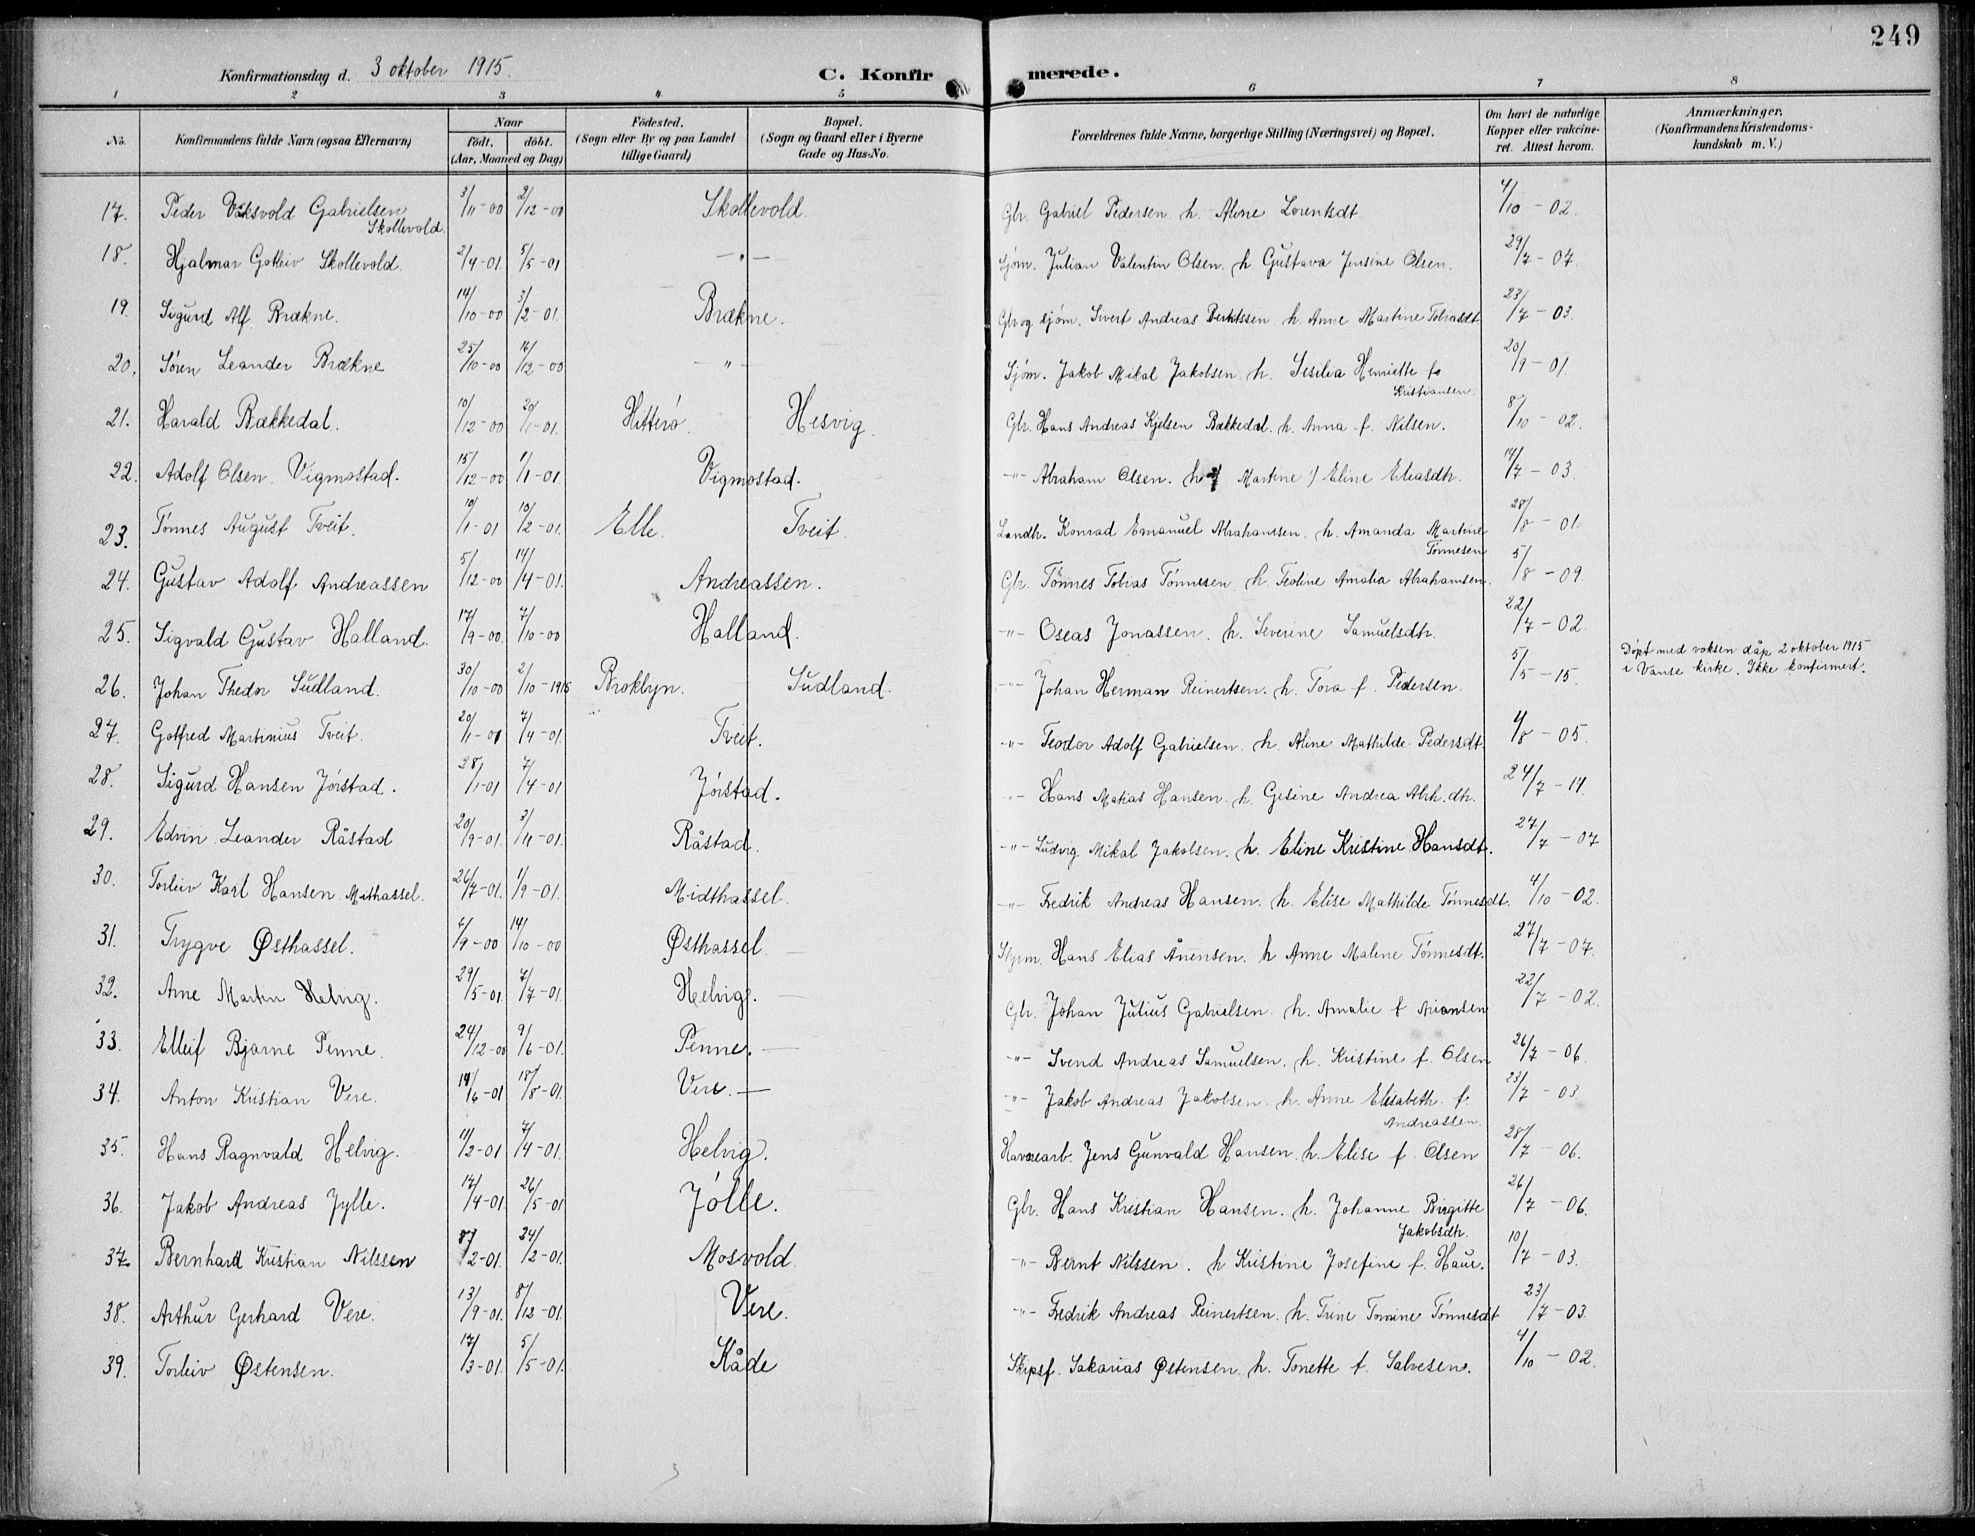 249
Konfirmationsdag d. 3 oktober 1915. C. Konfirmerede.
1 2 3 4 5 6 7 8
No. Konfirmandens fulde Navn (ogsaa Efternavn) Naar født. døbt. (Aar, Maaned og Dag) Fødested. (Sogn eller By og paa Landet tillige Gaard) Bopæl. (Sogn og Gaard eller i Byerne Gade og Hus-No. Forældrenes fulde Navne, borgerlige Stilling (Næringsvei) og Bopæl. Om havt de naturlige Kopper eller vakcineret. Attest herom. Anmærkninger. (Konfirmandens Kristendomskundskab m. V.)
17. Peder Gabrielsen Skollevold. 3/11-00 2/12-00 Skollevold. Gbr. Gabriel Pedersen. h. Aline Lorentsdt. 4/10-02.
18. Hjalmar Gotleiv Skollevold. 2/4-01. 5/5-01 -"- Sjøm. Julian Valentin Olsen. h. Gustava Jensine Olsen. 29/7-07.
19. Sigurd Alf Brækne. 14/10-00 3/2-01. Brækne. Gbr og sjøm. Sivert Andreas Berntssen. h. Anne Martine Tobiasdt. 23/7-03.
20. Søren Leander Brækne 25/10-00 16/12-00 -"- Sjøm. Jakob Mikal Jakobsen. h. Sesilia Henriette f. Kristiansen. 20/9-01.
21. Harald Bækkedal. 10/12-00 20/1-01. Hitterø. Hesvig. Gbr. Hans Andreas Kjelsen Bækkedal. h. Anna f. Nilsen. 8/10-02.
22. Adolf Olsen Vigmostad. 15/12-00 1/1-01. Vigmostad. -"- Abraham Olsen. h. Martine Eline Eliasdtr. 14/7-03.
23. Tønnes August Tveit. 10/1-01 10/2-01. Elle. Tveit. Landh. Konrad Emanuel Abrahamsen. h. Amanda Martine Tønnesen 28/8-01.
24. Gustav Adolf Andreassen 5/12-00 14/4-01. Andreassen. Gbr. Tønnes Tobias Tønnesen. h. Teoline Amalia Abrahamsen. 5/8-09.
25. Sigvald Gustav Halland. 17/9-00. 7/10-00 Halland. -"- Oseas Jonassen. h. Severine Samuelsdtr. 22/7-02.
26. Johan Thedor Sudland. 30/10-00 2/10-1915 Broklyn. Sudland. -"- Johan Herman Reinertsen. h. Tora f. Pedersen. 5/5-15. Døpt med voksen dåp 2 oktober 1915 i Vanse kirke. Ikke konfirmert.
27. Gotfred Martinius Tveit. 20/1-01 7/4-01. Tveit. -"- Teodor Adolf Gabrielsen. h. Aline Mathilde Pedersdt. 4/8-05.
28. Sigurd Hansen Jørstad. 28/1-01 7/4-01 Jørstad. -"- Hans Matias Hansen. h. Gesine Andrea Abrh.dtr. 24/7-14.
29. Edvin Leander Råstad 20/9-01. 3/11-01. Råstad. -"- Ludvig Mikal Jakobsen. h. Eline Kristine Hansdt. 27/7-07
30. Torleiv Karl Hansen Mithassel. 26/7-01. 1/9-01. Midthassel. -"- Fredrik Andreas Hansen. h. Elise Mathilde Tønnesdt. 4/10-02.
31. Trygve Østhassel. 4/9-00 14/10-00 Østhassel. Styrm. Hans Elias Ånensen. h Anne Malene Tønnesdt. 27/7-07.
32. Arne Martin Helvig. 29/5-01. 7/7-01. Helvig. Gbr. Johan Julius Gabrielsen. h. Amalie f Ariansen 22/7-02.
33. Elleif Bjarne Penne. 24/12-00 9/6-01. Penne. -"- Svend Andreas Samuelsen. h. Kristine f. Olsen 26/7-06.
34. Anton Kristian Vere. 14/6-01 18/8-01. Vere. -"- Jakob Andreas Jakobsen. h. Anne Elisabeth f. Andreassen. 23/7-03
35. Hans Ragnvald Helvig. 11/2-01 7/4-01. Helvig. Havnearb. Jens Gunvald Hansen. h. Elise f. Olsen 28/7-06.
36. Jakob Andreas Jylle. 17/4-01. 26/5-01 Jølle. Gbr. Hans Kristian Hansen. h. Johanne Birgitte Jakobsdtr. 26/7-06.
37. Bernhard Kristian Nilssen 2-01. 24/2-01. Mosvold. -"- Bernt Nilssen. h Kristine Josefine f. Haur. 10/7-03.
38. Arthur Gerhard Vere. 13/9-01. 8/12-01. Vere. -"- Fredrik Andreas Reinertsen. h. Trine Tomine Tønnesdt 23/7-03.
39. Torleiv Østensen. 17/3-01. 5/5-01. Kåde Skipsf. Sakarias Østensen. h. Tonette f. Salvesen. 4/10-02.